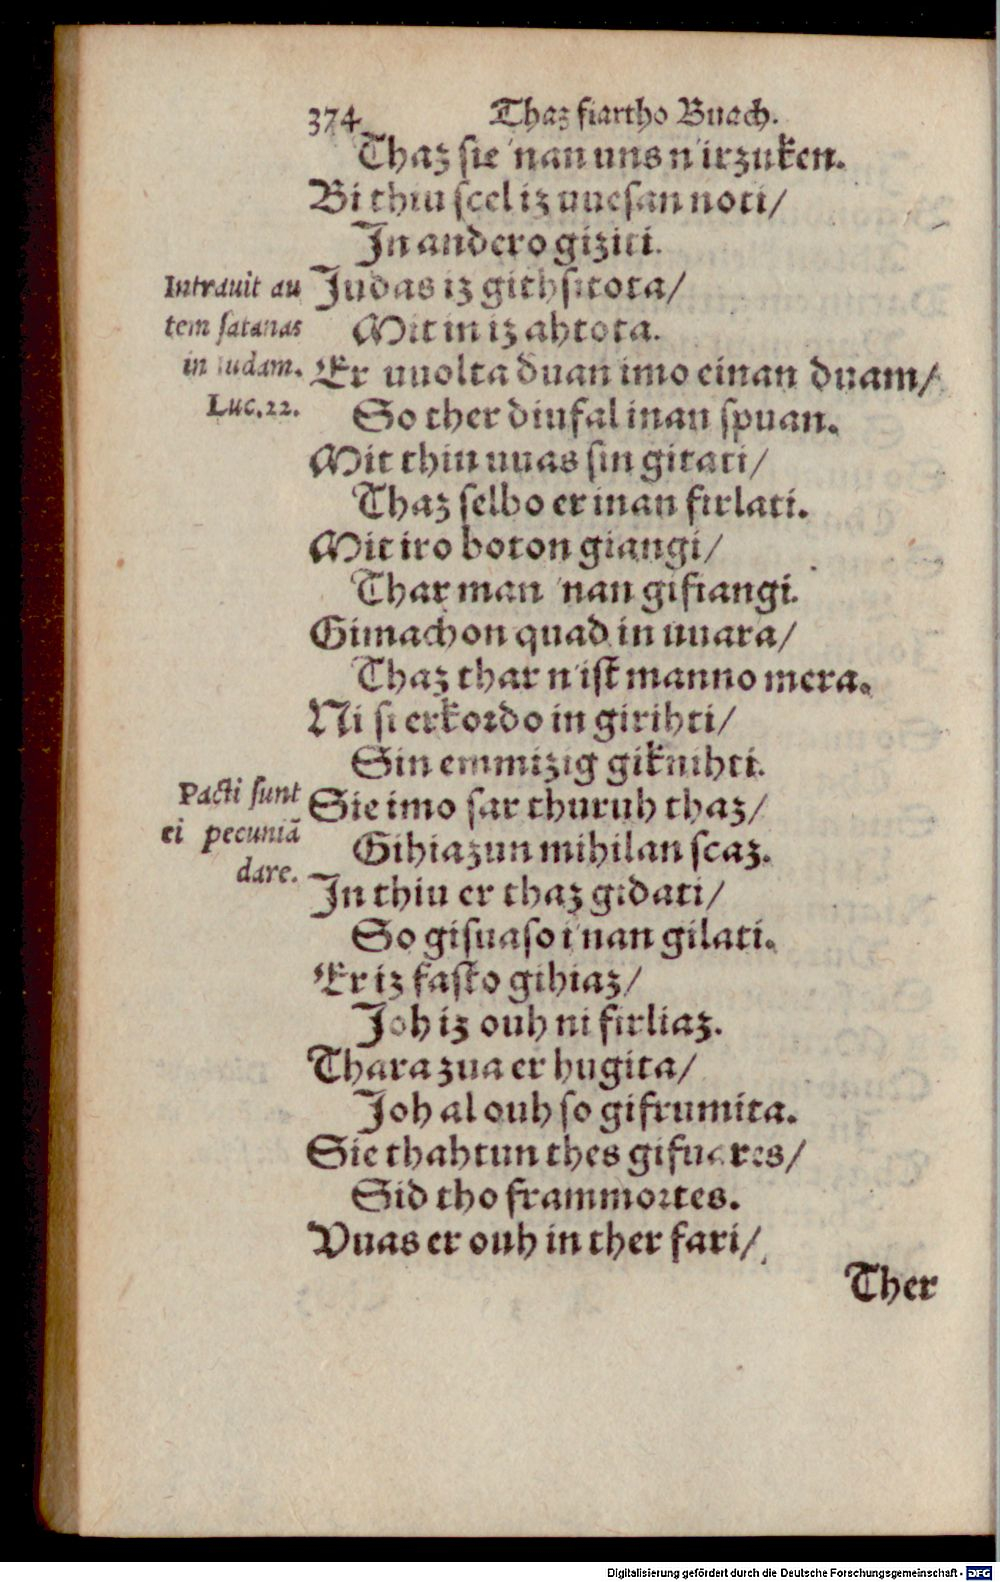 374 Thaz fiartho Buach.
Thaz sie 'nan uns n'irzuken.
Bi thiu scel iz uuesan noti/
In andero giziti.
Intrauit au
tem satanas
in Iudam.
Luc.22.
Judas iz githsitota/
Mit in iz ahtota.
Er uuolta duan imo einan duam/
So ther diufal inan spuan.
Mit thiu uuas sin gitati/
Thaz selbo er inan firlati.
Mit iro boton giangi/
Thar man 'nan gifiangi.
Gimachon quad in uuara/
Thaz thar n'ist manno mera.
Ni si erkordo in girihti/
Sin emmizig giknihti.
Pacti sunt
ei pecuniā
dare.
Sie imo sar thuruh thaz/
Gihiazun mihilan scaz.
In thiu er thaz gidati/
So gisuaso i'nan gilati.
Er iz fasto gihiaz/
Joh iz ouh ni firliaz.
Thara zua er hugita/
Joh al ouh so gifrumita.
Sie thahtun thes gifuares/
Sid tho frammortes.
Vuas er ouh in ther fari/
Ther
Digitalisierung gefördert durch die Deutsche Forschungsgemeinschaft - DFG